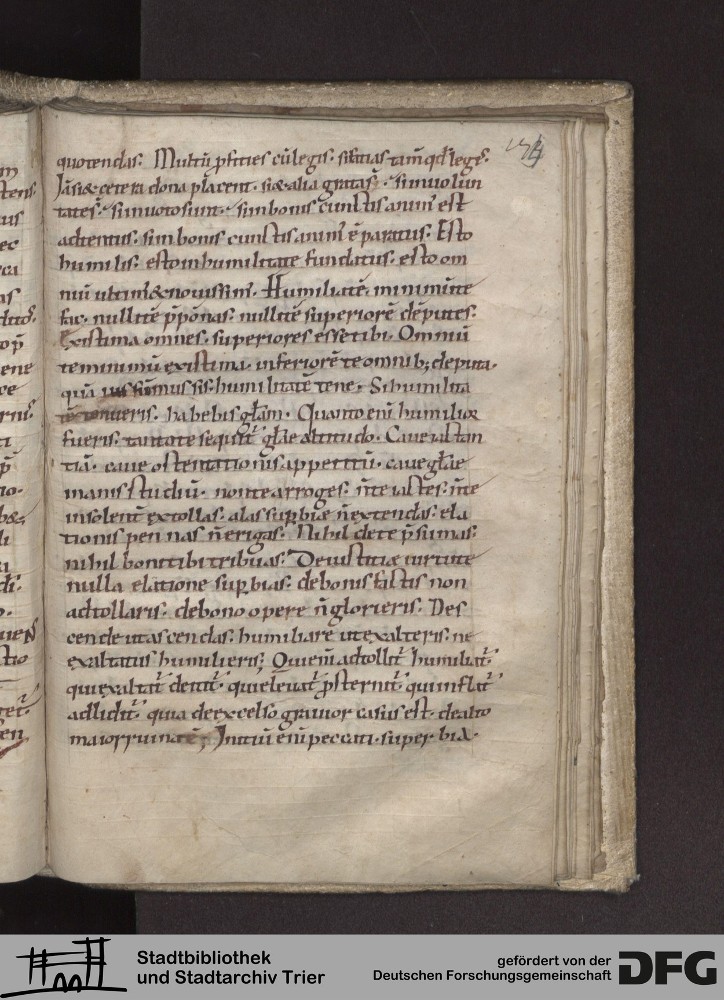 154
quotendas. Multū p̄ficies cū legis. si facias tam̄ qd̄ leges.
Iā si & cetera dona placent. si & alia gratas. si in volun
tates. si in voto sunt. si in bonis cunctis anim' est
adtentus. si in bonis cunctis anim' ē paratus. Esto
humilis. esto in humilitate fundatus. esto om
niū ultim' & novissim'. Humilitatē. minimū te
fac. nulli te p̄ponas. nulli te superiorē deputes.
Existima omnes superiores esse tibi. Omniū
te minimū existima. inferiorē te omnib; deputa.
quā vis sūmus sis. humilitatē tene. Si humilita
tē tenueris. habebis glām. Quanto enī humilior
fueris. tanto te sequit' glae altitudo. Cave iactan
tiā. cave ostentationis appetitū. cave glae
inanis studiū. non te arroges. n̄ te iactes. n̄ te
insolent' extollas. alas supbiae n̄ extendas. ela
tionis pennas n̄ erigas. Nihil de te p̄sumas.
nihil boni tibi tribuas. De iustitiae virtute
nulla elatione supbias. de bonis factis non
adtollaris. de bono opere n̄ glorieris. Des
cende ut ascendas. humiliare ut exalteris. ne
exaltatus humilieris; Qui enī adtollit' humiliat'.
qui exaltat' deicit'. qui elevat' p̄sternit'. qui inflat'
adlidit'. quia de excelso gravior casus est. de alto
maior ruina ē; Initiū enī peccati superbia.
Stadtbibliothek
und Stadtarchiv Trier
gefördert von der
Deutschen Forschungsgemeinschaft
DFG